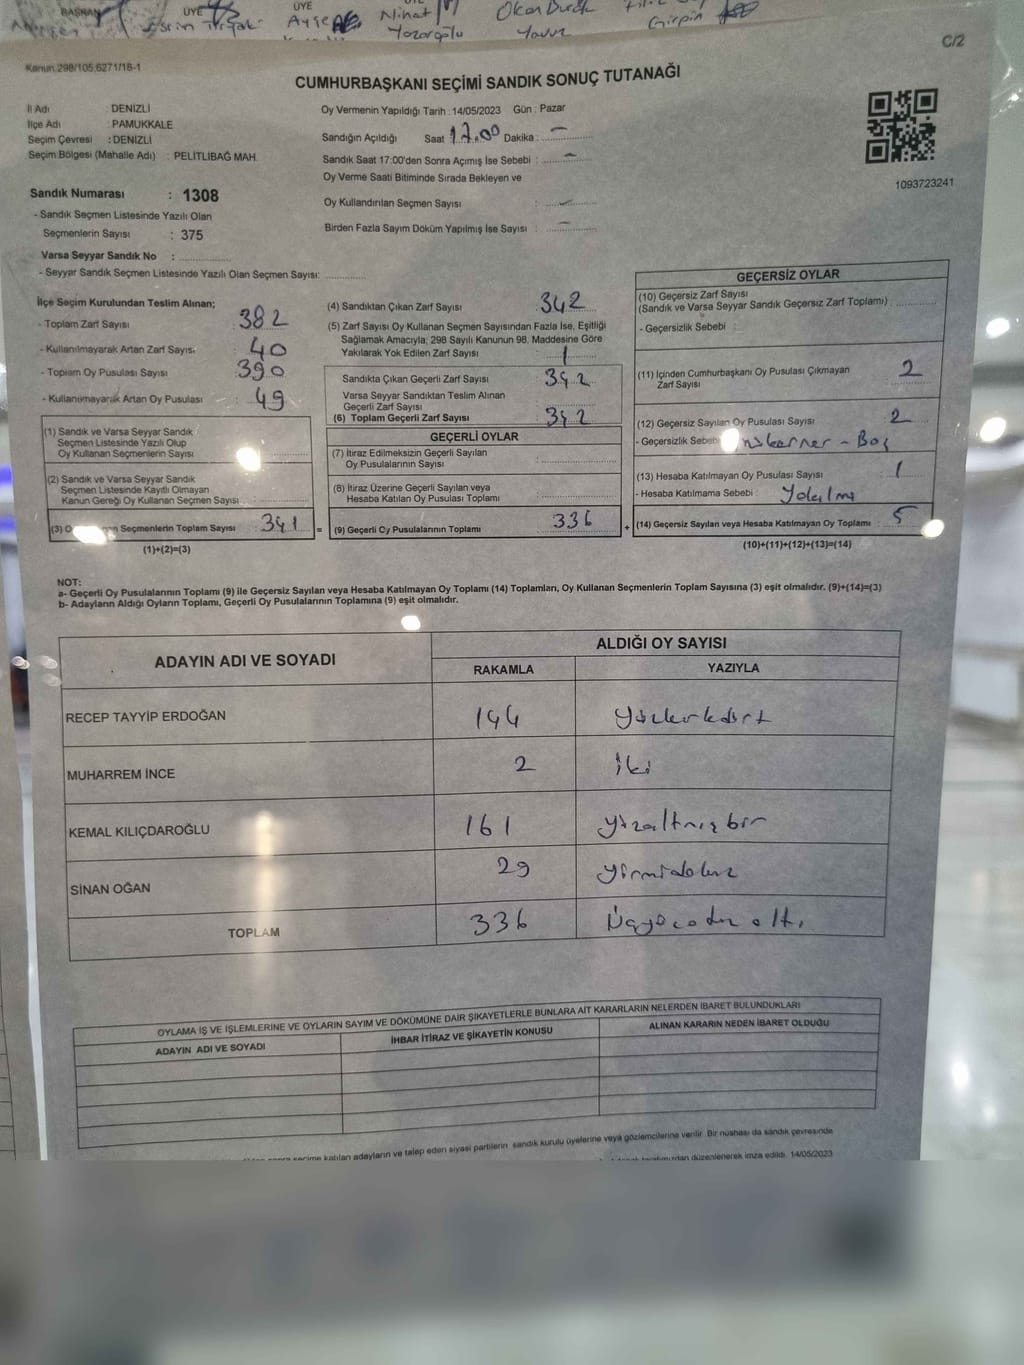 BAŞKAN ÜYE ÜYE
Ayşe Nihat Okan
Yavuz Girpin
C/2
Kanun.298/105,6271/18-1
CUMHURBAŞKANI SEÇİMİ SANDIK SONUÇ TUTANAĞI
İl Adı : DENİZLİ
İlçe Adı : PAMUKKALE
Seçim Çevresi : DENİZLİ
Seçim Bölgesi (Mahalle Adı) : PELİTLİBAĞ MAH.
Oy Vermenin Yapıldığı Tarih : 14/05/2023 Gün : Pazar
Sandığın Açıldığı Saat 17.00 Dakika : –
Sandık Saat 17:00'den Sonra Açımış İse Sebebi : –
Oy Verme Saati Bitiminde Sırada Bekleyen ve
Oy Kullandırılan Seçmen Sayısı : –
Birden Fazla Sayım Döküm Yapılmış İse Sayısı : –
1093723241
Sandık Numarası : 1308
- Sandık Seçmen Listesinde Yazılı Olan
Seçmenlerin Sayısı : 375
Varsa Seyyar Sandık No :
- Seyyar Sandık Seçmen Listesinde Yazılı Olan Seçmen Sayısı:
İlçe Seçim Kurulundan Teslim Alınan;
- Toplam Zarf Sayısı 382
- Kullanılmayarak Artan Zarf Sayısı 40
- Toplam Oy Pusulası Sayısı 390
- Kullanılmayarak Artan Oy Pusulası 49
(1) Sandık ve Varsa Seyyar Sandık
Seçmen Listesinde Yazılı Olup
Oy Kullanan Seçmenlerin Sayısı
(2) Sandık ve Varsa Seyyar Sandık
Seçmen Listesinde Kayıtlı Olmayan
Kanun Gereği Oy Kullanan Seçmen Sayısı
(3) Seçmenlerin Toplam Sayısı 341 =
(1)+(2)=(3)
(4) Sandıktan Çıkan Zarf Sayısı 342
(5) Zarf Sayısı Oy Kullanan Seçmen Sayısından Fazla İse, Eşitliği
Sağlamak Amacıyla; 298 Sayılı Kanunun 98. Maddesine Göre
Yakılarak Yok Edilen Zarf Sayısı 1
Sandıkta Çıkan Geçerli Zarf Sayısı 342
Varsa Seyyar Sandıktan Teslim Alınan
Geçerli Zarf Sayısı
(6) Toplam Geçerli Zarf Sayısı 342
GEÇERLİ OYLAR
(7) İtiraz Edilmeksizin Geçerli Sayılan
Oy Pusulalarının Sayısı
(8) İtiraz Üzerine Geçerli Sayılan veya
Hesaba Katılan Oy Pusulası Toplamı
(9) Geçerli Oy Pusulalarının Toplamı 336 +
GEÇERSİZ OYLAR
(10) Geçersiz Zarf Sayısı
(Sandık ve Varsa Seyyar Sandık Geçersiz Zarf Toplamı)
- Geçersizlik Sebebi :
(11) İçinden Cumhurbaşkanı Oy Pusulası Çıkmayan
Zarf Sayısı 2
(12) Geçersiz Sayılan Oy Pusulası Sayısı : 2
- Geçersizlik Sebebi - Boş
(13) Hesaba Katılmayan Oy Pusulası Sayısı : 1
- Hesaba Katılmama Sebebi : Yakılma
(14) Geçersiz Sayılan veya Hesaba Katılmayan Oy Toplamı : 5
(10)+(11)+(12)+(13)=(14)
NOT:
a- Geçerli Oy Pusulalarının Toplamı (9) ile Geçersiz Sayılan veya Hesaba Katılmayan Oy Toplamı (14) Toplamları, Oy Kullanan Seçmenlerin Toplam Sayısına (3) eşit olmalıdır. (9)+(14)=(3)
b- Adayların Aldığı Oyların Toplamı, Geçerli Oy Pusulalarının Toplamına (9) eşit olmalıdır.
ADAYIN ADI VE SOYADI ALDIĞI OY SAYISI
RAKAMLA YAZIYLA
RECEP TAYYİP ERDOĞAN 144 yüzkırkdört
MUHARREM İNCE 2 İki
KEMAL KILIÇDAROĞLU 161 yüzaltmışbir
SİNAN OĞAN 29 yirmidokuz
TOPLAM 336 Üçyüzotuz altı
OYLAMA İŞ VE İŞLEMLERİNE VE OYLARIN SAYIM VE DÖKÜMÜNE DAİR ŞİKAYETLERLE BUNLARA AİT KARARLARIN NELERDEN İBARET BULUNDUKLARI
ADAYIN ADI VE SOYADI İHBAR İTİRAZ VE ŞİKAYETİN KONUSU ALINAN KARARIN NEDEN İBARET OLDUĞU
seçime katılan adayların ve talep eden siyasi partilerin sandık kurulu üyelerine veya gözlemcilerine verilir. Bir nüshası da sandık çevresinde
düzenlenerek imza edildi. 14/05/2023